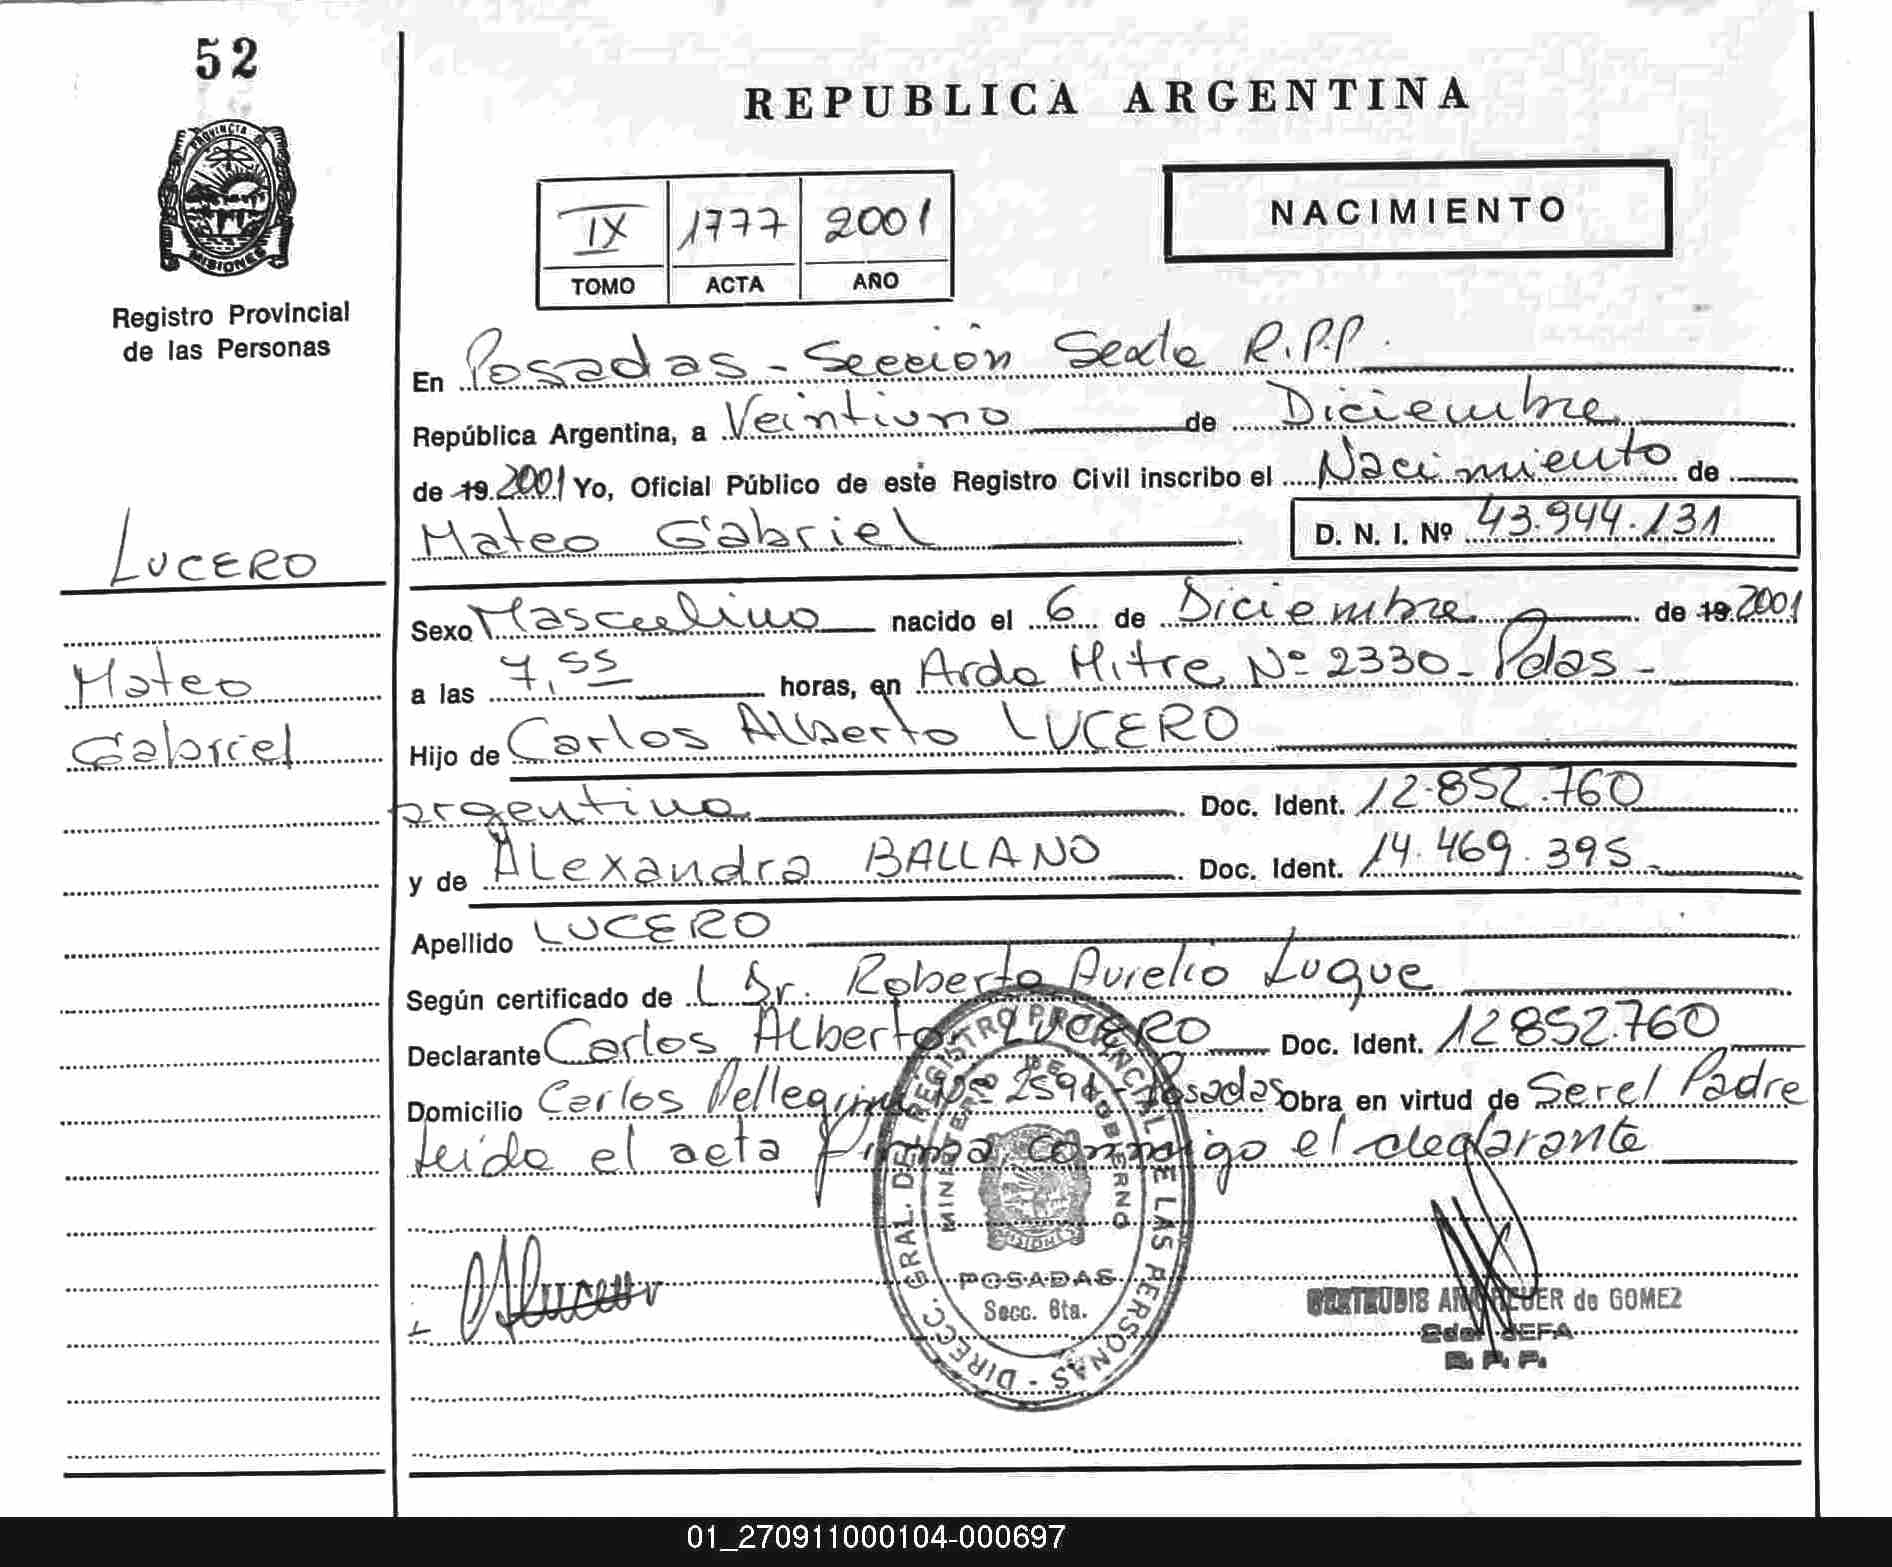 52
PROVINCIA DE
MISIONES
Registro Provincial
de las Personas
LUCERO
Mateo
Gabriel
REPUBLICA ARGENTINA
IX 1777 2001
TOMO ACTA AÑO
NACIMIENTO
En Posadas - Sección Sexta R.P.P.
República Argentina, a Veintiuno de Diciembre
de 19 2001 Yo, Oficial Público de este Registro Civil inscribo el Nacimiento de
Mateo Gabriel D. N. I. Nº 43.944.131
Sexo Masculino nacido el 6 de Diciembre de 19 2001
a las 7,55 horas, en Avda Mitre Nº 2330 - Pdas -
Hijo de Carlos Alberto LUCERO
argentino Doc. Ident. 12.852.760
y de Alexandra BALLANO Doc. Ident. 14.469.395
Apellido LUCERO
Según certificado de Dr. Roberto Aurelio Luque
Declarante Carlos Alberto LUCERO Doc. Ident. 12852.760
Domicilio Carlos Pellegrini Nº 2594 - Posadas Obra en virtud de Ser el Padre
leida el acta firma conmigo el declarante
DIRECC. GRAL. DEL REGISTRO PROVINCIAL DE LAS PERSONAS
MINISTERIO DE GOBIERNO
MISIONES
POSADAS
Secc. 6ta.
de GOMEZ
JEFA
R. P. P.
01_270911000104-000697